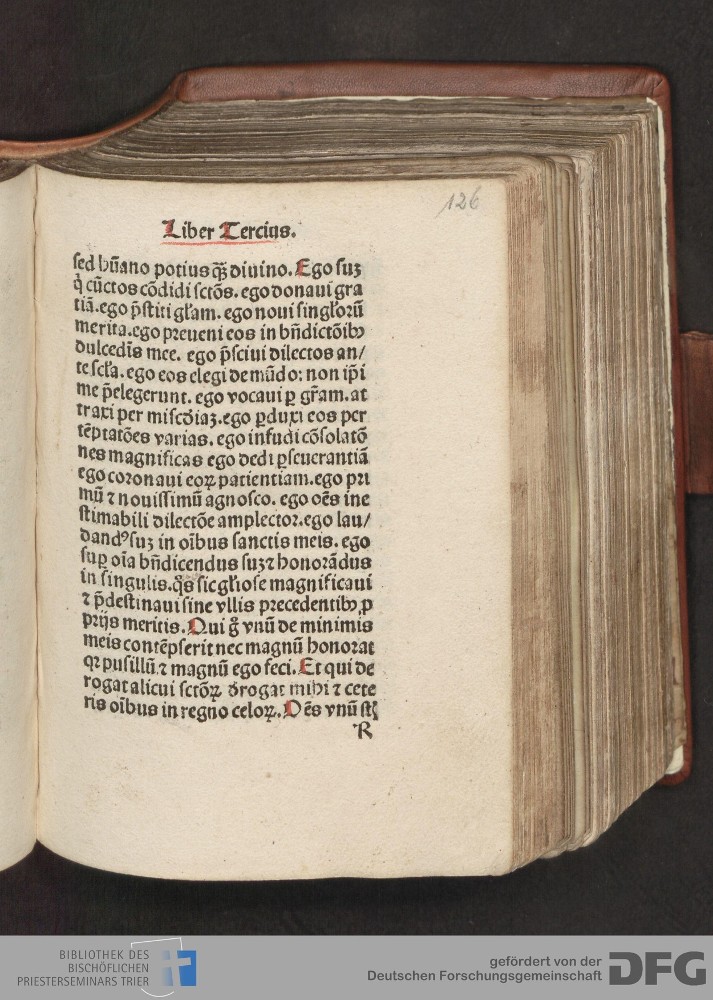 126
Liber Tercius.
sed hũano potius q̃ꝫ diuino. Ego suꝫ
q̇ cũctos cõdidi sctõs. ego donaui gra
tiã. ego p̃stiti gl'am. ego noui singl'orũ
merita. ego preueni eos in bñdictõibꝫ
dulcedĩs mee. ego p̃sciui dilectos an/
te scl'a. ego eos elegi de mũdo: non ip̃i
me p̃elegerunt. ego vocaui ꝑ gr̃am. at
traxi per miscðiaꝫ. ego ꝑduxi eos per
tẽptatões varias. ego infudi cõsolatõ
nes magnificas ego dedi ꝑseuerantiã
ego coronaui eoꝝ patientiam. ego pri
mũ ⁊ nouissimũ agnosco. ego oẽs ine
stimabili dilectõe amplector. ego lau/
dandꝰ suꝫ in oĩbus sanctis meis. ego
suꝑ oĩa bñdicendus suꝫ ⁊ honorãdus
in singulis. q̊s sic gl'iose magnificaui
⁊ p̃destinaui sine vllis precedentibꝫ ꝓ
prijs meritis. Qui g̊ vnũ de minimis
meis contẽpserit nec magnũ honorat
qꝛ pusillũ ⁊ magnũ ego feci. Et qui de
rogat alicui sctõꝝ ðrogat mihi ⁊ cete
ris oĩbus in regno celoꝝ. Oẽs vnũ st̃
R
BIBLIOTHEK DES
BISCHÖFLICHEN
PRIESTERSEMINARS TRIER
gefördert von der
Deutschen Forschungsgemeinschaft
DFG